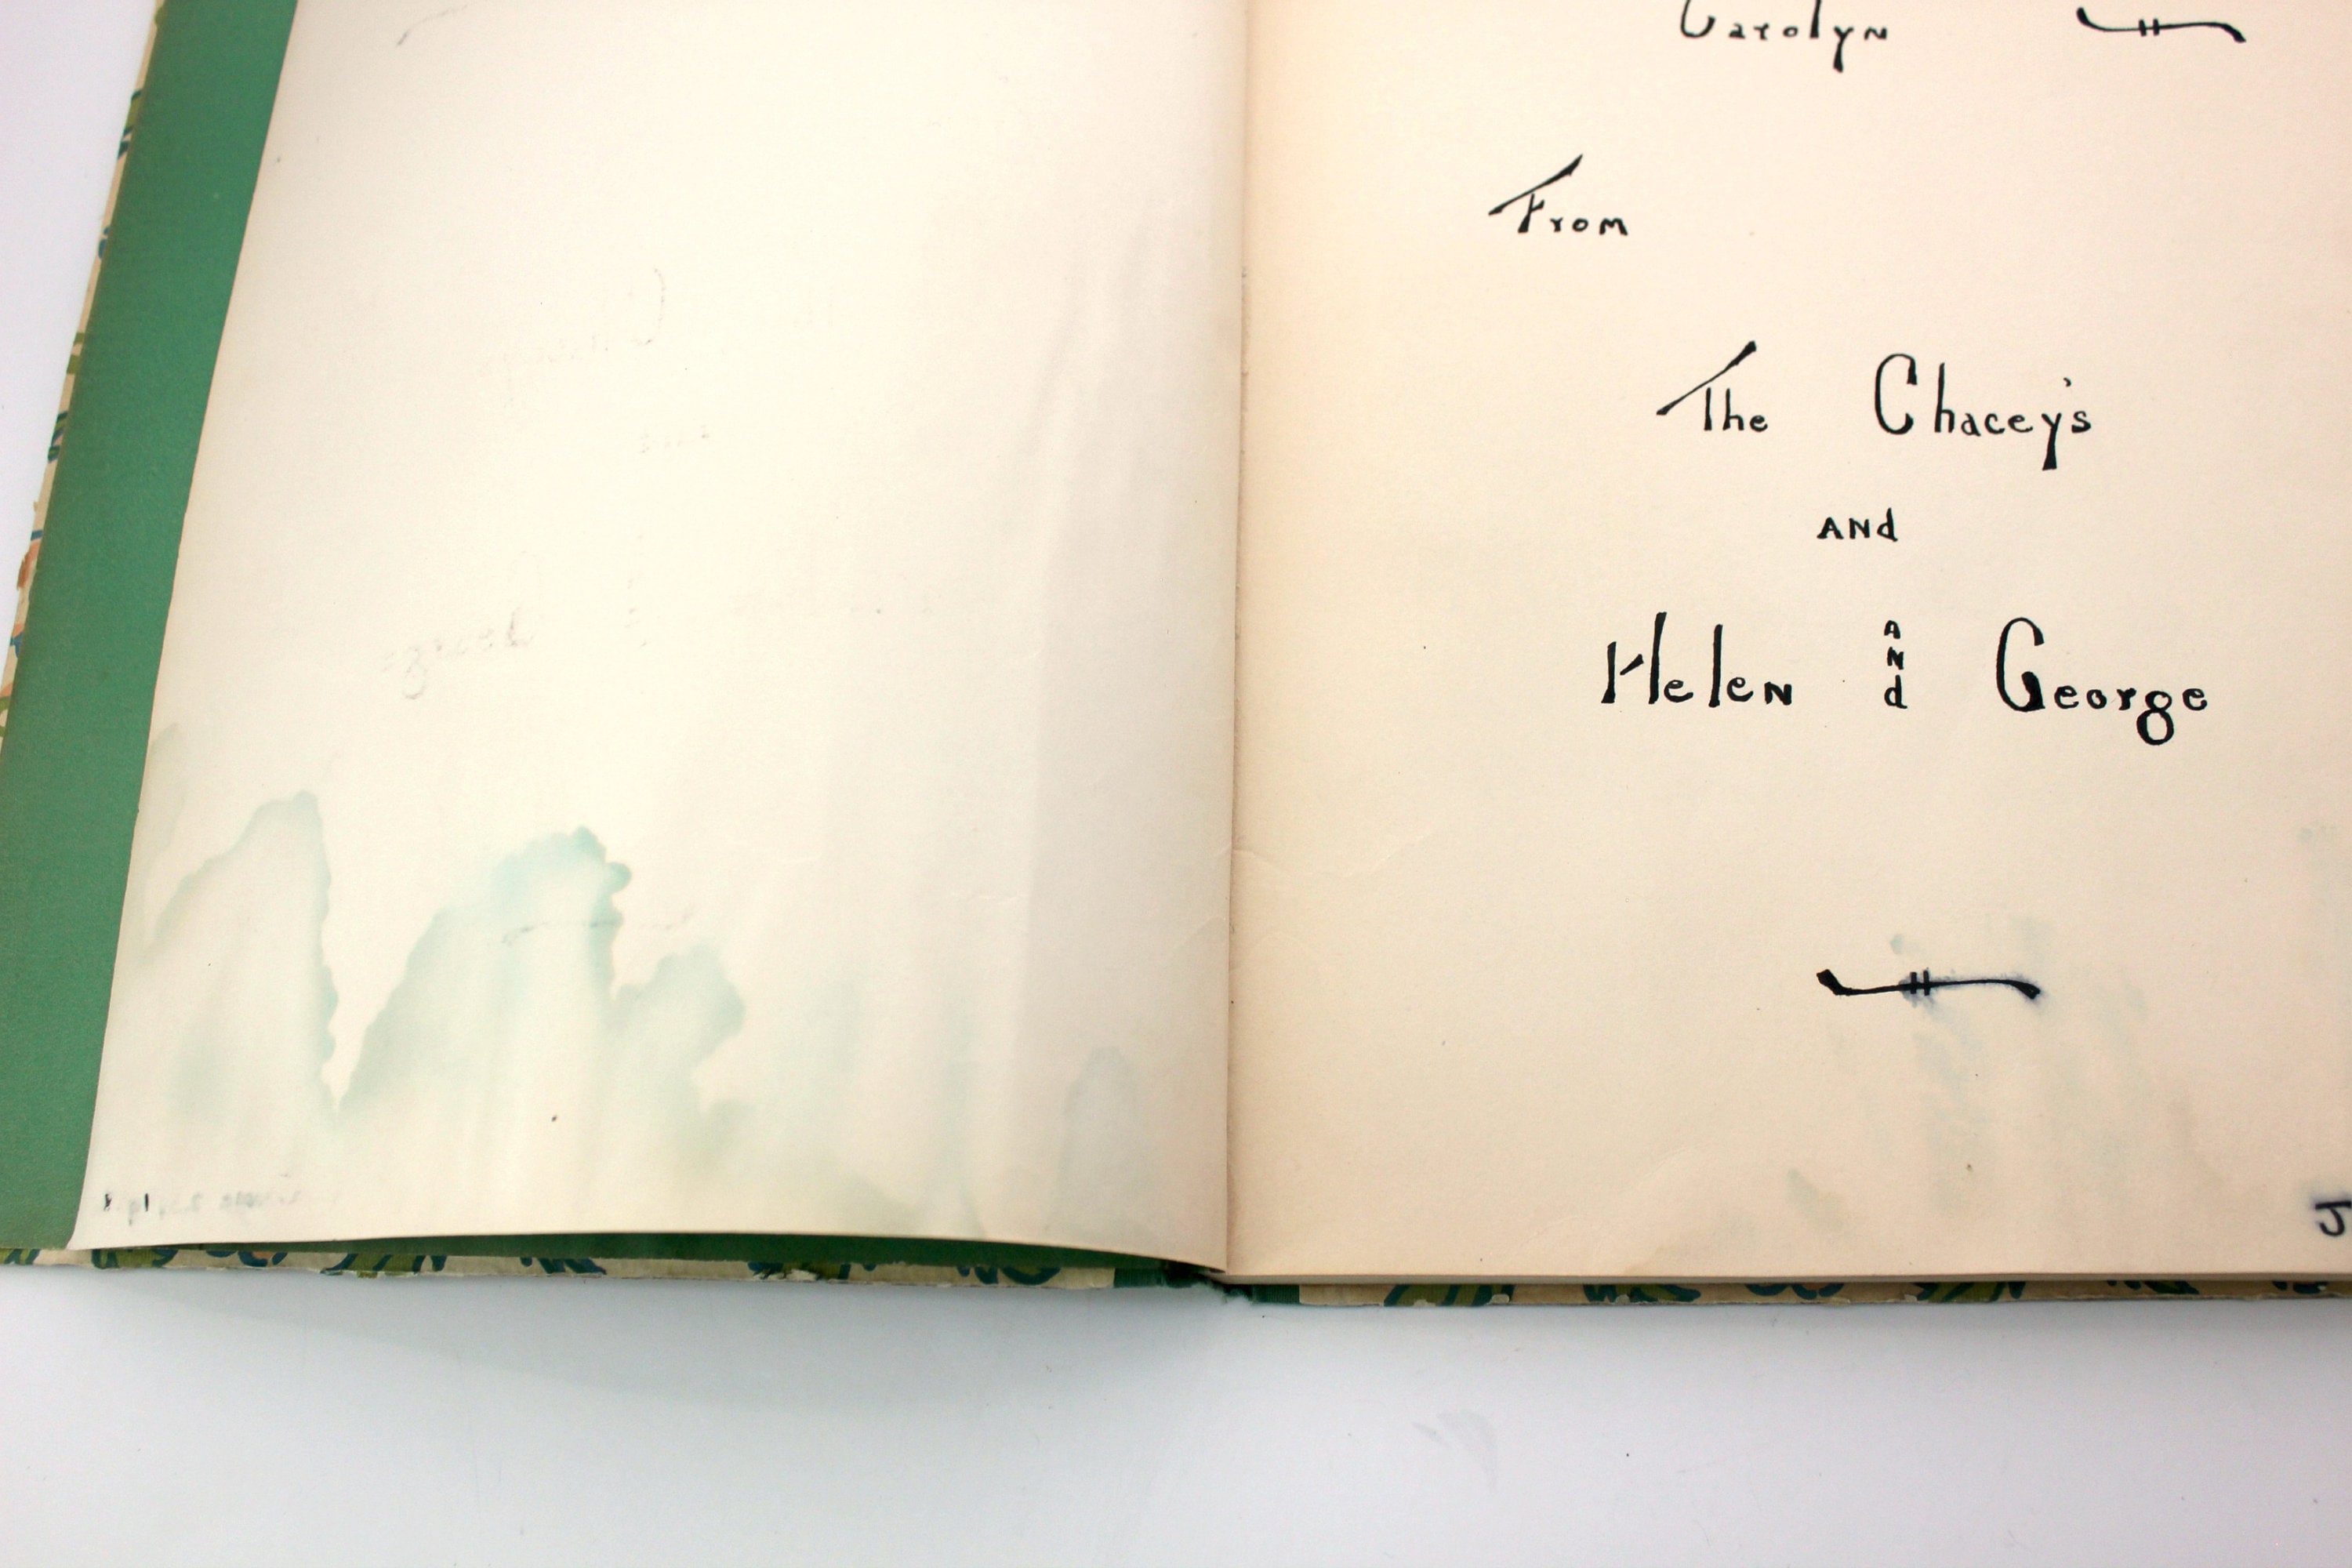 Carolyn
From
The Chacey's
AND
Helen ANd George
J